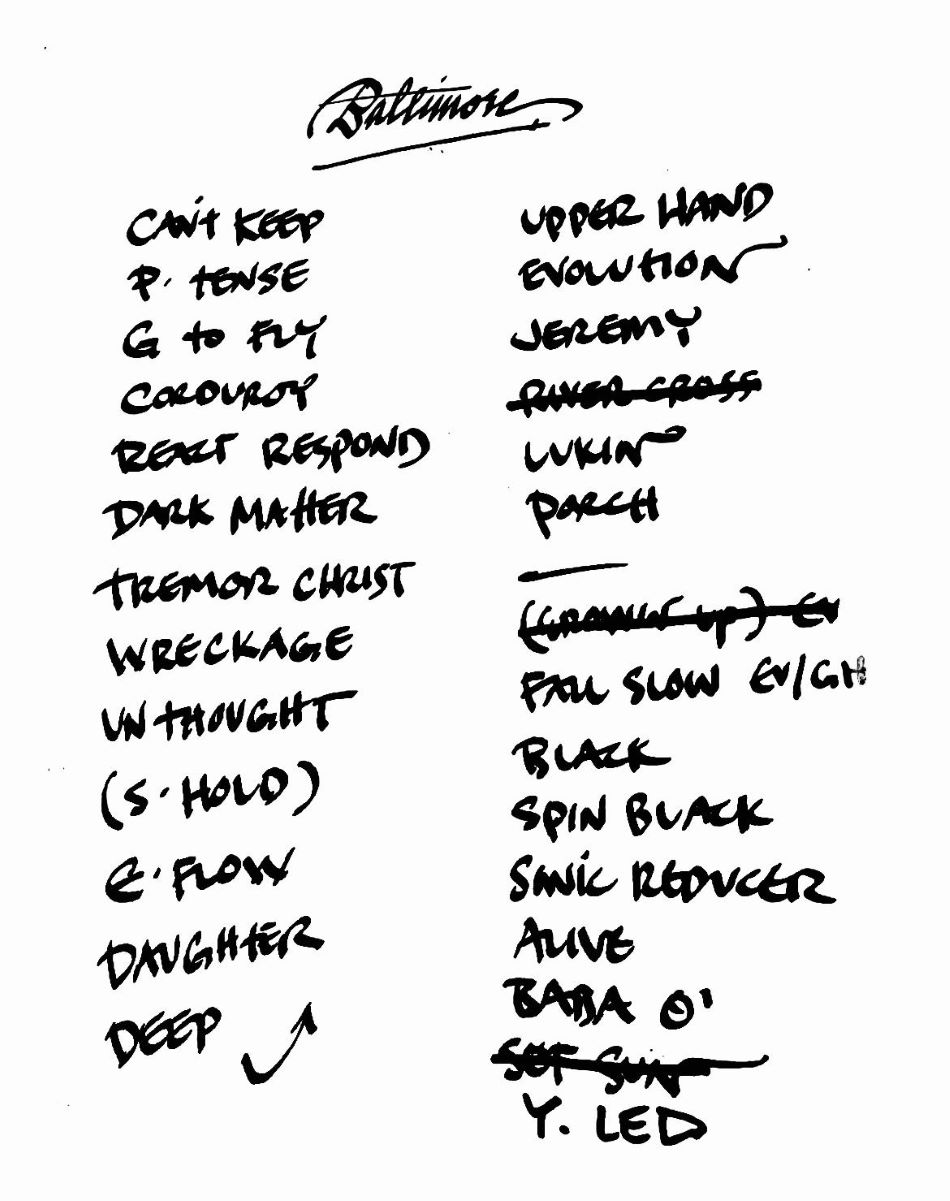 Baltimore
CAN'T KEEP
P. TENSE
G to FLY
CORDUROY
REACT RESPOND
DARK MATTER
TREMOR CHRIST
WRECKAGE
UNTHOUGHT
(S. HOLD)
E. FLOW
DAUGHTER
DEEP
UPPER HAND
EVOLUTION
JEREMY
RIVER CROSS
LUKIN
PORCH
(GROWIN' UP) EV
FALL SLOW EV/GH
BLACK
SPIN BLACK
SONIC REDUCER
ALIVE
BABA O'
SET SUN
Y. LED